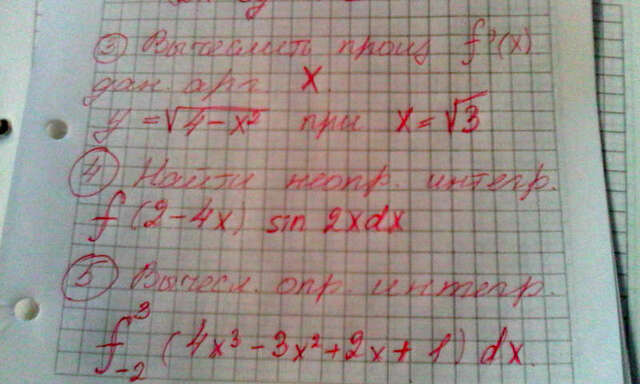 ③ Вычеслить произ f'(x)
дан. арг. x.
y = √4-x² при x = √3
④ Найти неопр. интегр.
∫(2-4x) sin 2xdx
⑤ Вычесл. опр. интегр.
∫₋₂³ (4x³-3x²+2x+1) dx.